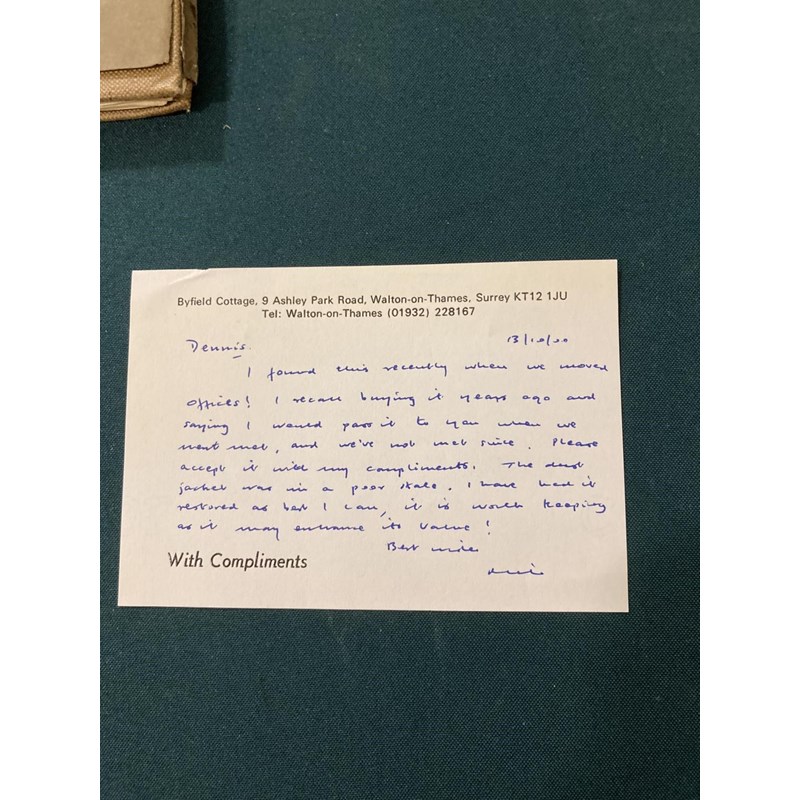 Byfield Cottage, 9 Ashley Park Road, Walton-on-Thames, Surrey KT12 1JU
Tel: Walton-on-Thames (01932) 228167
Dennis. 13/10/00
I found this recently when we moved
offices! I recall buying it years ago and
saying I would pass it to you when we
next met, and we've not met since. Please
accept it with my compliments. The dust
jacket was in a poor state. I have had it
restored as best I can, it is worth keeping
as it may enhance its value!
Best wishes
With Compliments